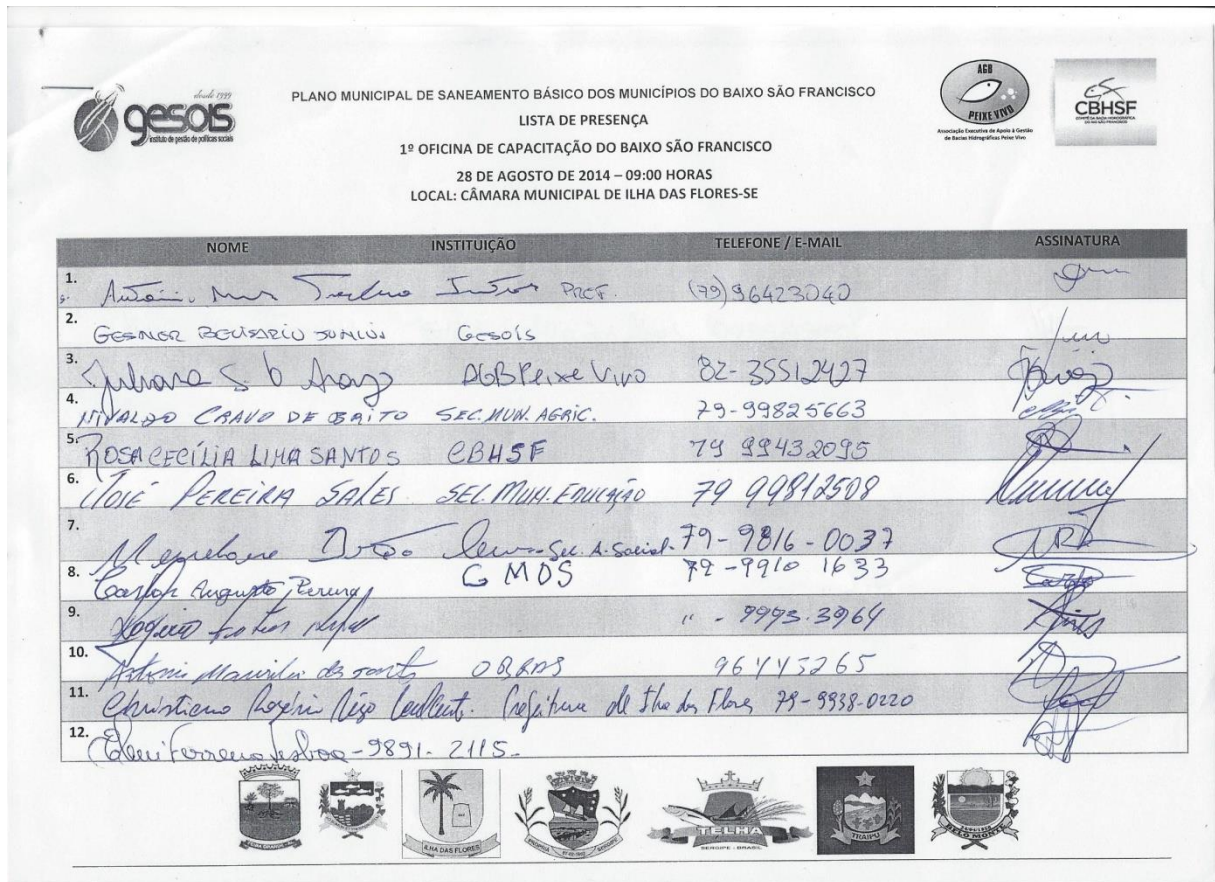 desde 1999
gesois
instituto de gestão de políticas sociais
PLANO MUNICIPAL DE SANEAMENTO BÁSICO DOS MUNICÍPIOS DO BAIXO SÃO FRANCISCO
LISTA DE PRESENÇA
1º OFICINA DE CAPACITAÇÃO DO BAIXO SÃO FRANCISCO
28 DE AGOSTO DE 2014 – 09:00 HORAS
LOCAL: CÂMARA MUNICIPAL DE ILHA DAS FLORES-SE
AGB
PEIXE VIVO
Associação Executiva de Apoio à Gestão
de Bacias Hidrográficas Peixe Vivo
CBHSF
COMITÊ DA BACIA HIDROGRÁFICA
DO RIO SÃO FRANCISCO
NOME INSTITUIÇÃO TELEFONE / E-MAIL ASSINATURA
1. PREF. (79)96423040
2. GESNER BELISARIO JUNIOR Gesois
3. Juliana S. AGB Peixe Vivo 82-35512427
4. NIVALDO CRAVO DE BRITO SEC. MUN. AGRIC. 79-99825663
5. ROSA CECÍLIA LIMA SANTOS CBHSF 79 99432095
6. JOSÉ PEREIRA SALES SEC. MUN. EDUCAÇÃO 79 99812508
7. Sec. A. Social. 79-9816-0037
8. Carlos Augusto Pereira 79-9910 1633
9. " - 9993.3964
10. Antonio dos santos OBRAS 96445265
11. Christiano Rogério Prefeitura de Ilha das Flores 79-9938-0220
12. Ferreira Lisboa - 9891-2115-
ILHA DAS FLORES
PROPRIÁ SERGIPE
TELHA
SERGIPE - BRASIL
TRAIPU
BELO MONTE